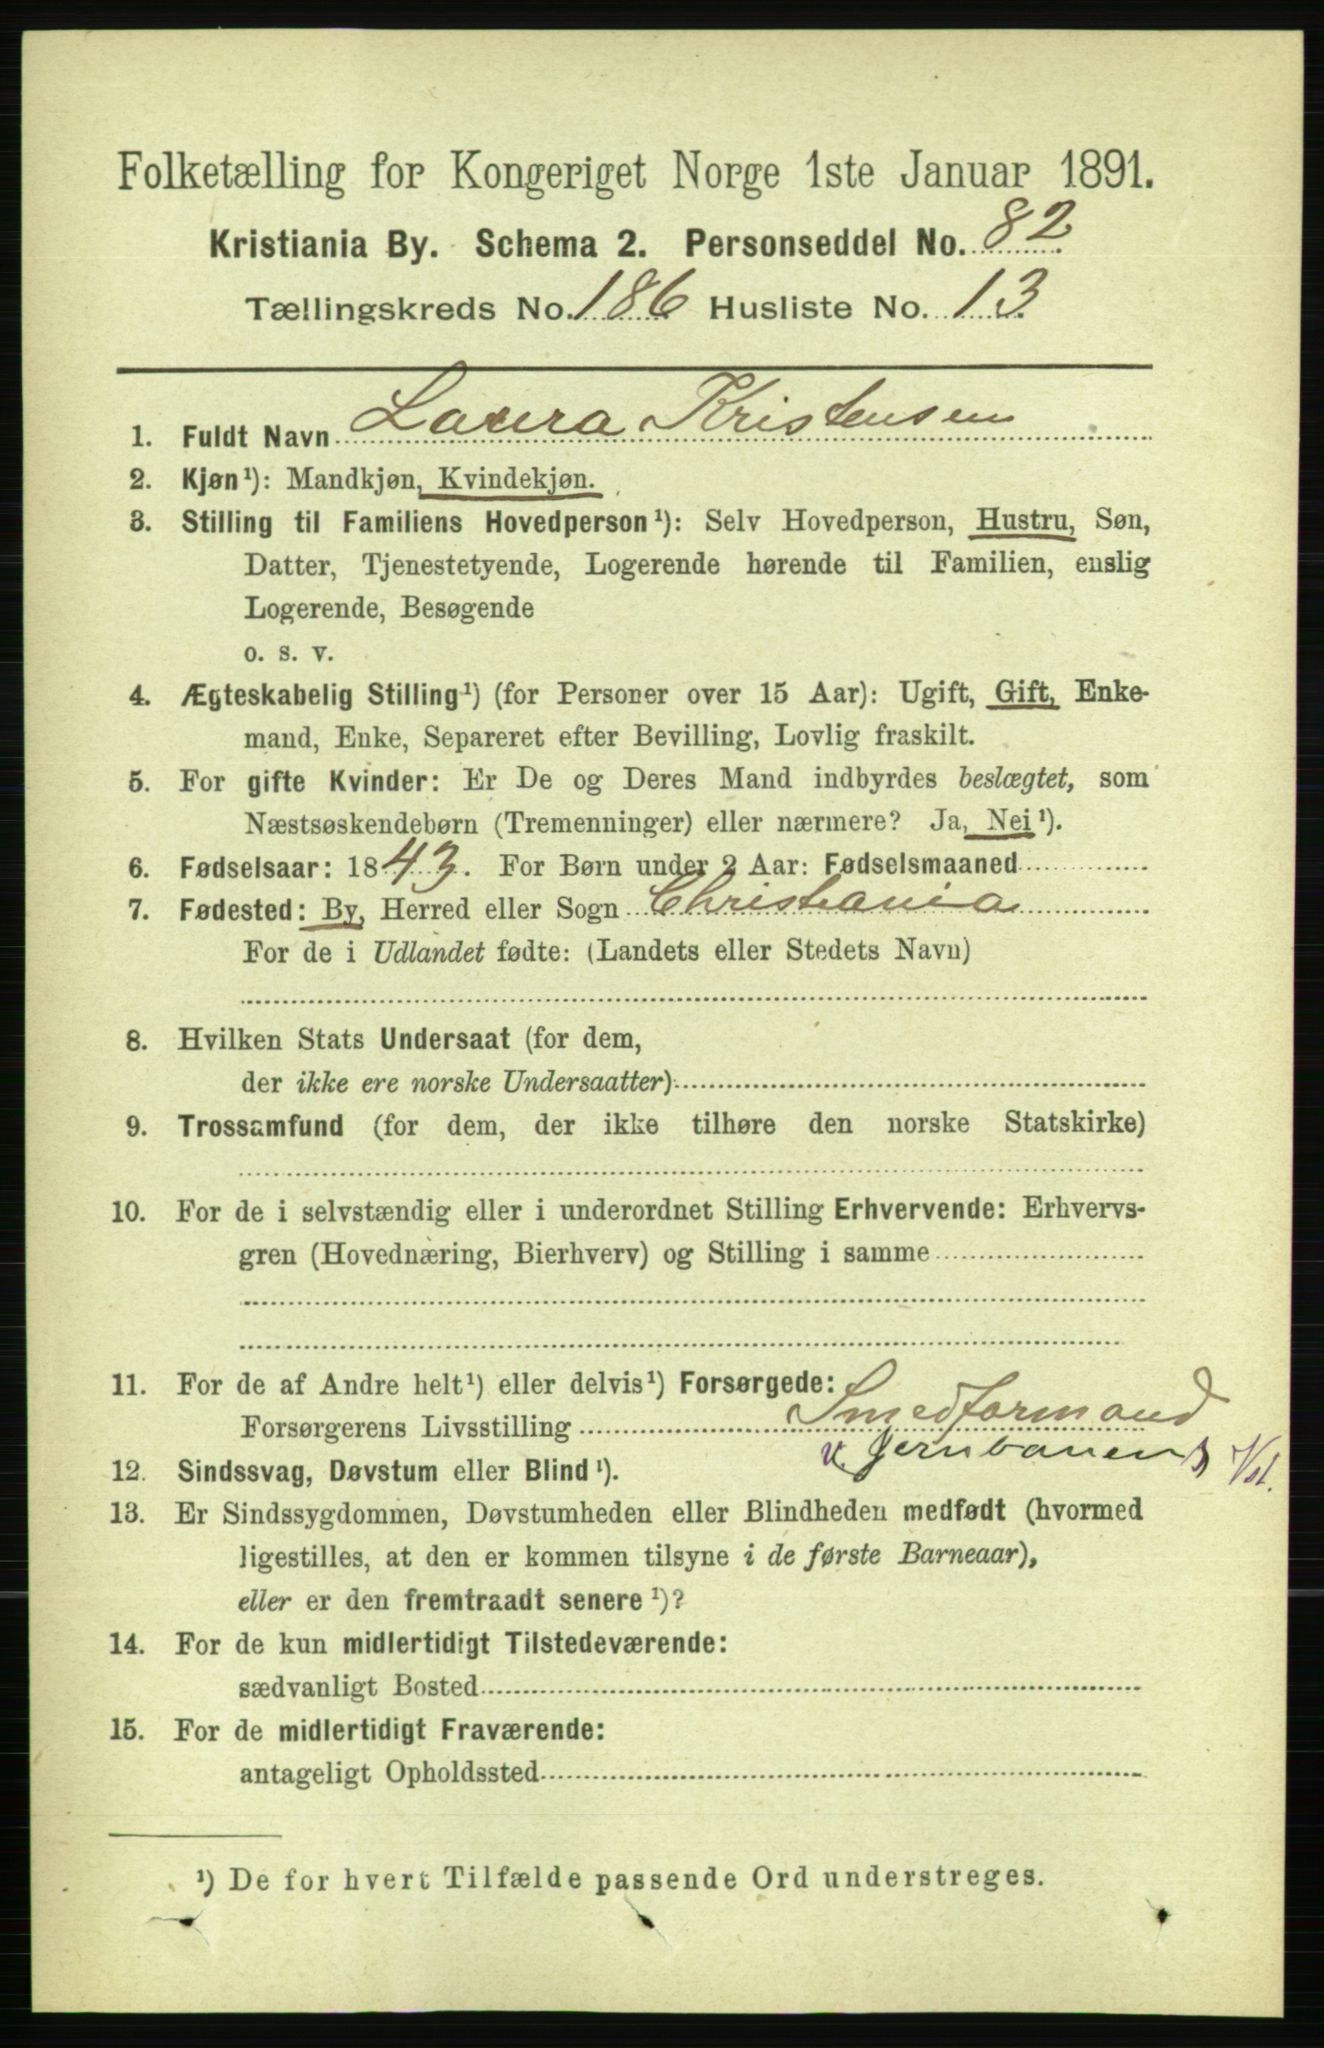 Folketælling for Kongeriget Norge 1ste Januar 1891.
Kristiania By. Schema 2. Personseddel No. 82
Tællingskreds No. 186 Husliste No. 13
1. Fuldt Navn Laura Kristensen
2. Kjøn¹): Mandkjøn, Kvindekjøn.
3. Stilling til Familiens Hovedperson¹): Selv Hovedperson, Hustru, Søn,
Datter, Tjenestetyende, Logerende hørende til Familien, enslig
Logerende, Besøgende
o. s. v.
4. Ægteskabelig Stilling¹) (for Personer over 15 Aar): Ugift, Gift, Enke-
mand, Enke, Separeret efter Bevilling, Lovlig fraskilt.
5. For gifte Kvinder: Er De og Deres Mand indbyrdes beslægtet, som
Næstsøskendebørn (Tremenninger) eller nærmere? Ja, Nei¹).
6. Fødselsaar: 1843. For Børn under 2 Aar: Fødselsmaaned
7. Fødested: By, Herred eller Sogn Christiania
For de i Udlandet fødte: (Landets eller Stedets Navn)
8. Hvilken Stats Undersaat (for dem,
der ikke ere norske Undersaatter)
9. Trossamfund (for dem, der ikke tilhøre den norske Statskirke)
10. For de i selvstændig eller i underordnet Stilling Erhvervende: Erhvervs-
gren (Hovednæring, Bierhverv) og Stilling i samme
11. For de af Andre helt¹) eller delvis¹) Forsørgede:
Forsørgerens Livsstilling Smedformand
v. Jernbanens Vst.
12. Sindssvag, Døvstum eller Blind¹).
13. Er Sindssygdommen, Døvstumheden eller Blindheden medfødt (hvormed
ligestilles, at den er kommen tilsyne i de første Barneaar),
eller er den fremtraadt senere¹)?
14. For de kun midlertidigt Tilstedeværende:
sædvanligt Bosted
15. For de midlertidigt Fraværende:
antageligt Opholdssted
¹) De for hvert Tilfælde passende Ord understreges.